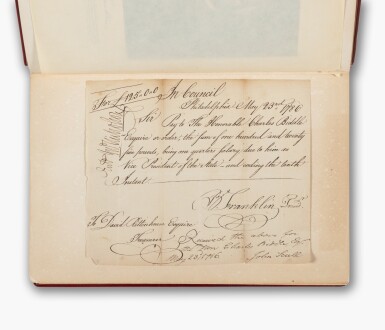 For £125.0.0 In Council
Philadelphia May 23rd 1786
Sir Pay to The Honorable Charles Biddle
Esquire or order, the sum of one hundred and twenty
five pounds, being one quarters salary due to him as
Vice President of the State and ending the tenth
Instant
B Franklin Presd
To David Rittenhouse Esquire
Treasurer
Received the above for
Charles Biddle Esqr
1786